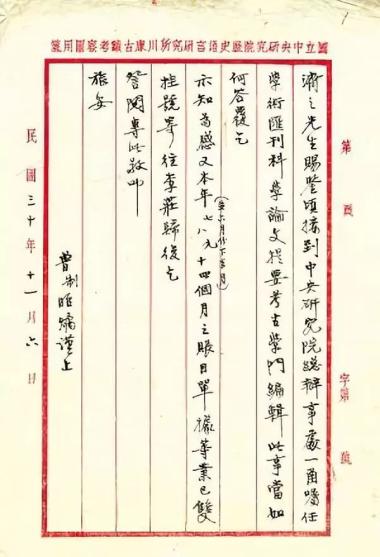 國立中央研究院歷史語言研究所川康古蹟考察團用箋
第 頁
字第 號
濟之先生賜鑒頃接到中央研究院總辦事處一角囑任
學術匯刊科學論文提要考古學門編輯此事當如
何答覆乞
六月份下半月
示知為感又本年七八九十四個月之賬目單據等業已雙
掛號寄往李莊歸後乞
詧閱專此敬叩
旅安
曾制昭燏謹上
民國三十年十一月六日